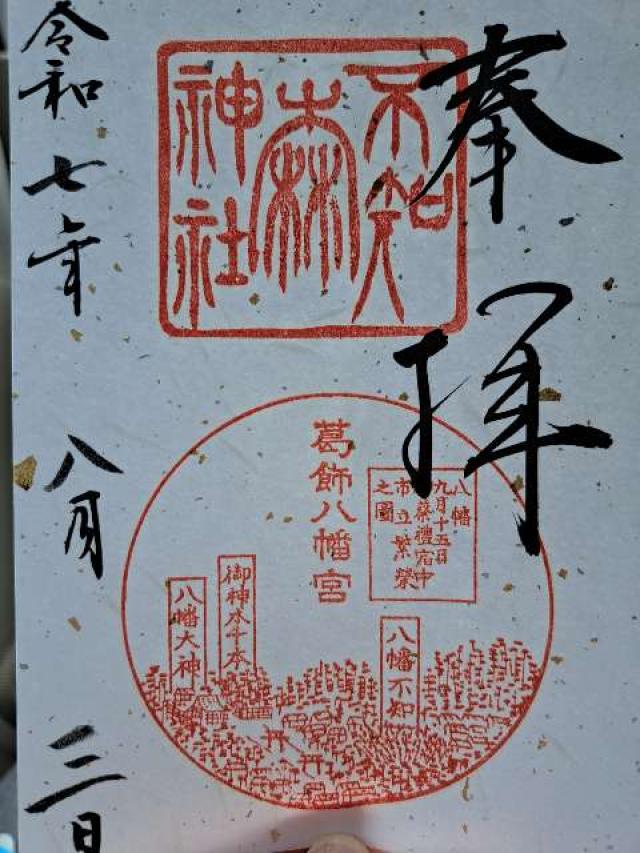 奉拝
不知
森
神社
八幡
九月十五日
祭禮宿中
市立繁榮
之圖
葛飾八幡宮
八幡不知
御神木千本
八幡大神
令和七年八月三日